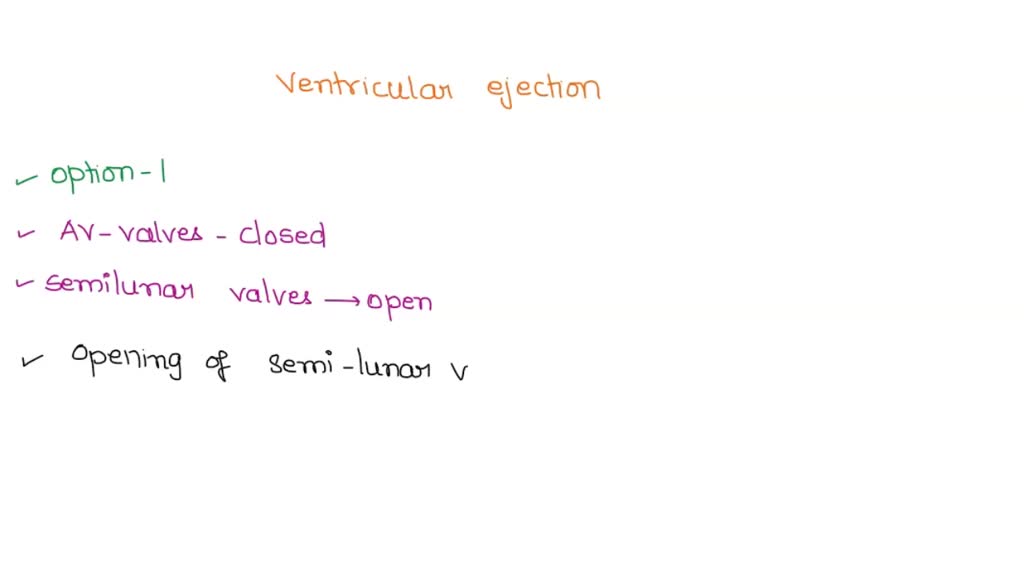 Ventricular ejection
✓ option-1
✓ AV-valves - closed
✓ semilunar valves → open
✓ opening of semi-lunar v